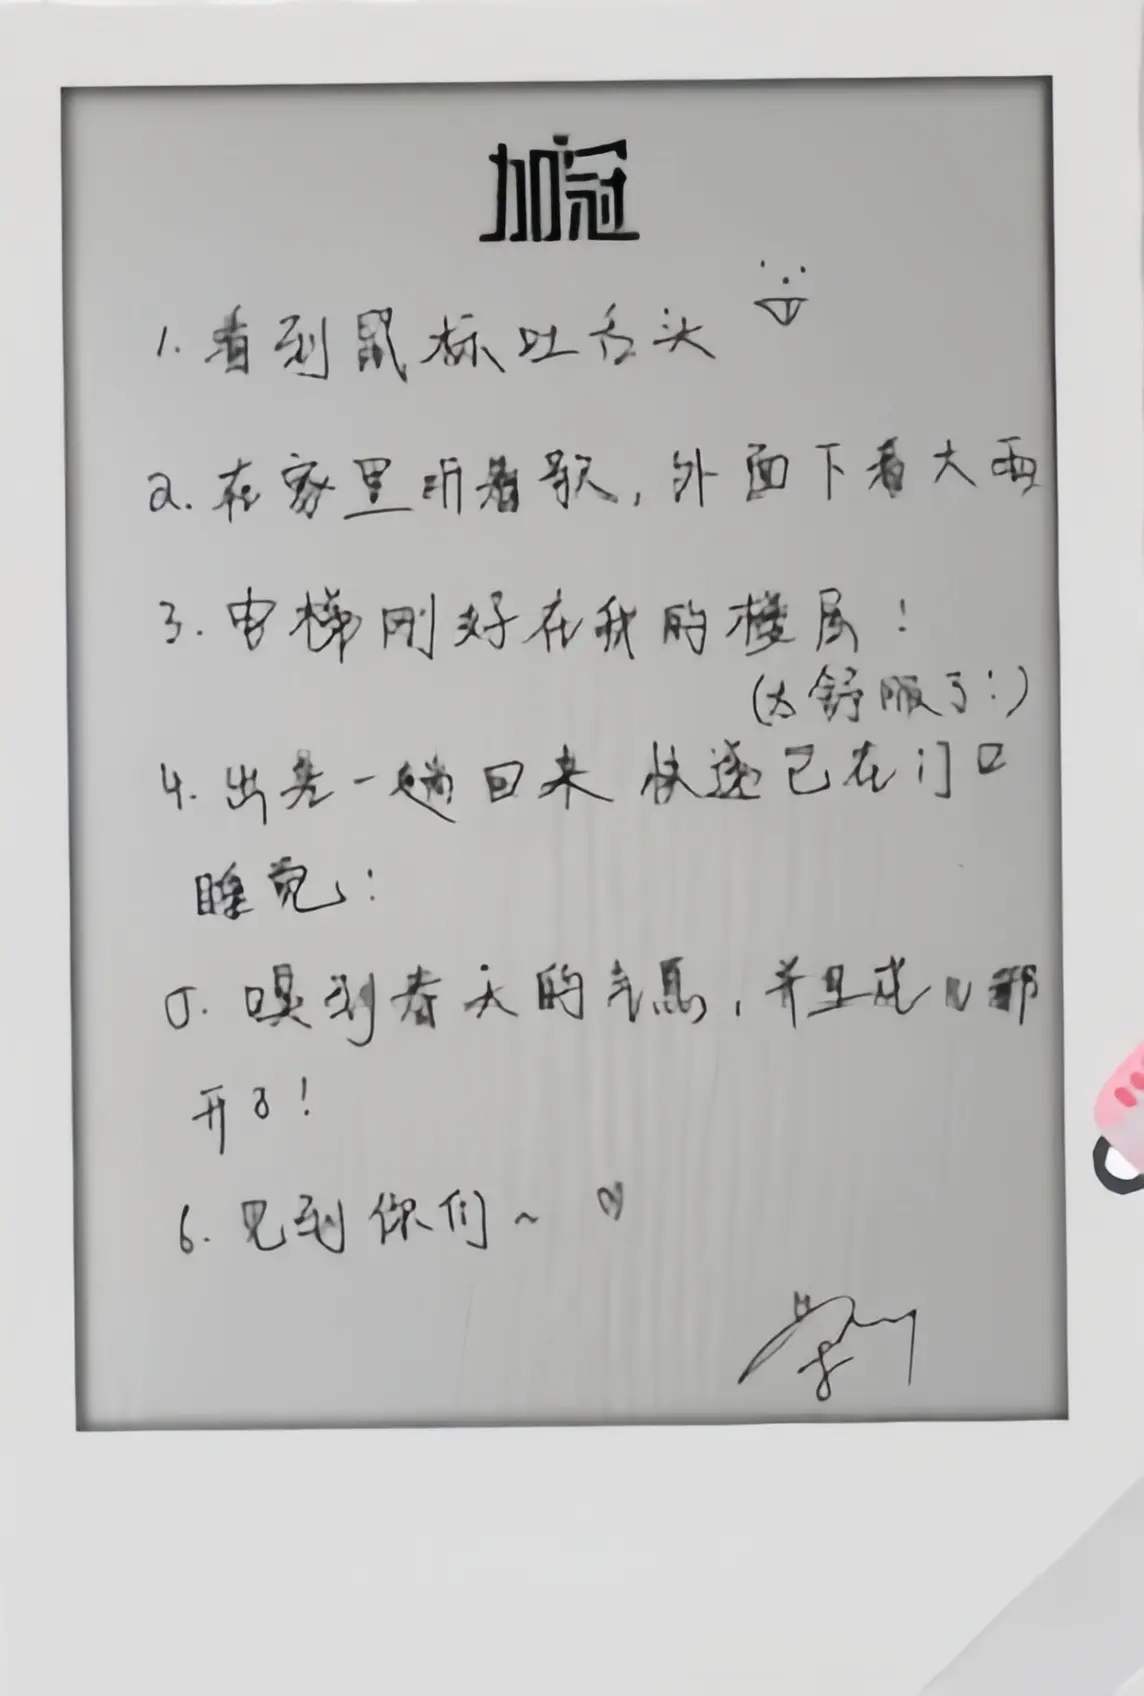 加冠
1. 看到鼠标吐舌头
2. 在家里听着歌,外面下着大雨
3. 电梯刚好在我的楼层!
(太舒服了!)
4. 出去一趟回来 快递已在门口
睡觉!
5. 嗅到春天的气息,并且花儿都
开了!
6. 见到你们~ ♡